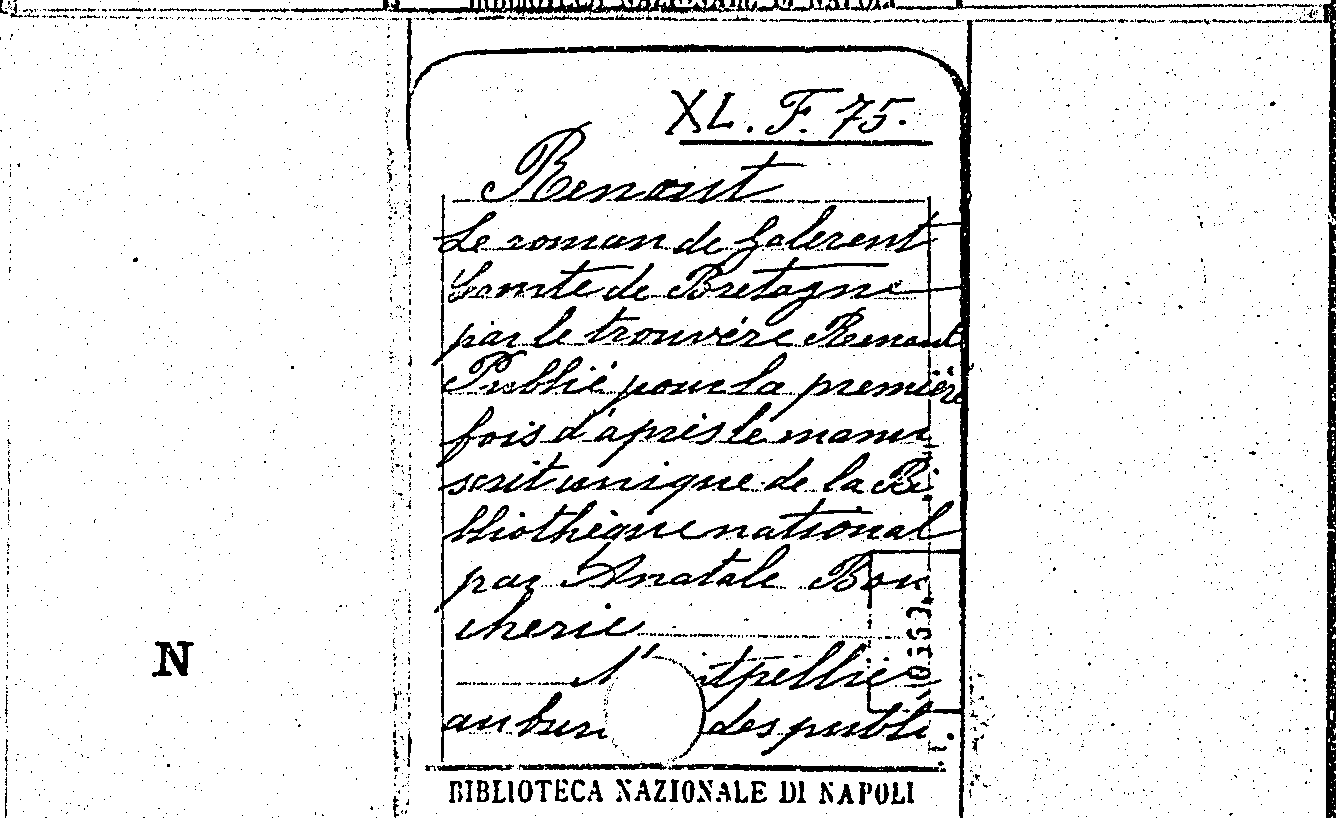 BIBLIOTECA NAZIONALE DI NAPOLI
XL. F. 75.
Renaut
Le roman de Galerent
Comte de Bretagne
par le trouvère Renaut
Publié pour la première
fois d'après le manu
scrit unique de la Bi
bliothèque national
par Anatale Bou
cherie
M tpellier
au bur des publi
BIBLIOTECA NAZIONALE DI NAPOLI
N